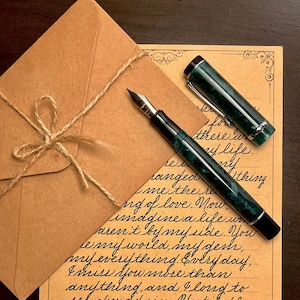 there were
my life
anged
thing
me the rea
ng of love. Now
imagine a life w
aren't by my side. You
re my world, my gem,
my everything. Everyday,
I miss you more than
anything, and I long to